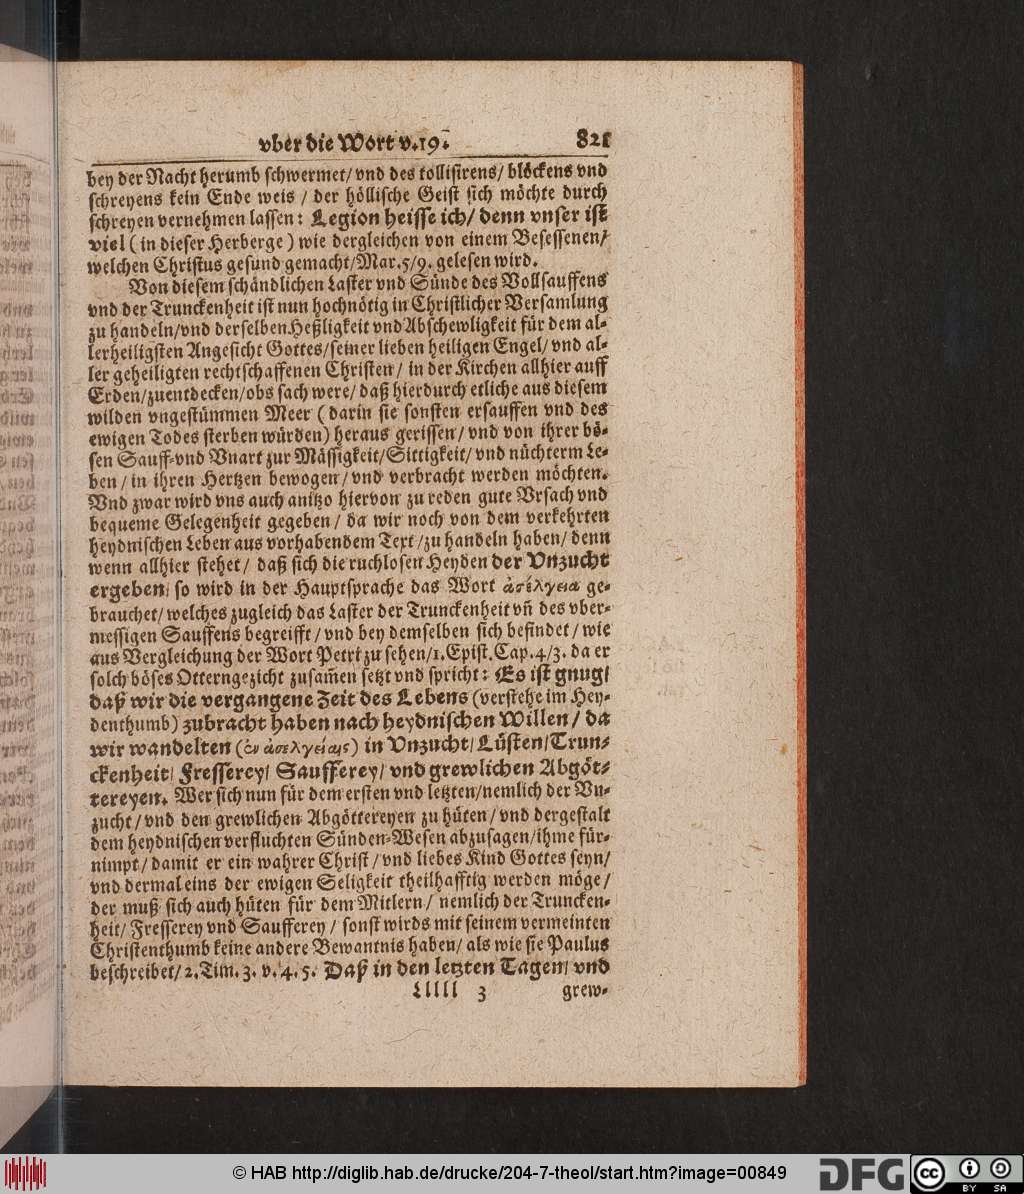 vber die Wort v.19. 821
bey der Nacht herumb schwermet/ vnd des tollisirens/ blöckens vnd
schreyens kein Ende weis / der höllische Geist sich möchte durch
schreyen vernehmen lassen: Legion heisse ich/ denn vnser ist
viel ( in dieser Herberge ) wie dergleichen von einem Besessenen/
welchen Christus gesund gemacht/Mar.5/9. gelesen wird.
Von diesem schändlichen Laster vnd Sünde des Vollsauffens
vnd der Trunckenheit ist nun hochnötig in Christlicher Versamlung
zu handeln/vnd derselben Heßligkeit vnd Abschewligkeit für dem al-
lerheiligsten Angesicht Gottes/seiner lieben heiligen Engel/ vnd al-
ler geheiligten rechtschaffenen Christen/ in der Kirchen allhier auff
Erden/zuentdecken/obs sach were/ daß hierdurch etliche aus diesem
wilden vngestümmen Meer ( darin sie sonsten ersauffen vnd des
ewigen Todes sterben würden) heraus gerissen/ vnd von ihrer bö-
sen Sauff-vnd Vnart zur Mässigkeit/Sittigkeit/ vnd nüchterm Le-
ben/ in ihren Hertzen bewogen/ vnd verbracht werden möchten.
Vnd zwar wird vns auch anitzo hiervon zu reden gute Vrsach vnd
bequeme Gelegenheit gegeben/ da wir noch von dem verkehrten
heydnischen Leben aus vorhabendem Text/zu handeln haben/ denn
wenn allhier stehet/ daß sich die ruchlosen Heyden der Vnzucht
ergeben/ so wird in der Hauptsprache das Wort ἀσέλγεια ge-
brauchet/ welches zugleich das Laster der Trunckenheit vñ des vber-
messigen Sauffens begreifft/ vnd bey demselben sich befindet/ wie
aus Vergleichung der Wort Petri zu sehen/1.Epist.Cap.4/3. da er
solch böses Otterngezicht zusam̃en setzt vnd spricht: Es ist gnug/
daß wir die vergangene Zeit des Lebens (verstehe im Hey-
denthumb) zubracht haben nach heydnischen Willen/ da
wir wandelten (ἐν ἀσελγείαις) in Vnzucht/ Lüsten/ Trun-
ckenheit/ Fresserey/ Saufferey/ vnd grewlichen Abgöt-
tereyen. Wer sich nun für dem ersten vnd letzten/nemlich der Vn-
zucht/ vnd den grewlichen Abgöttereyen zu hüten/ vnd dergestalt
dem heydnischen verfluchten Sünden-Wesen abzusagen/ihme für-
nimpt/ damit er ein wahrer Christ/ vnd liebes Kind Gottes seyn/
vnd dermaleins der ewigen Seligkeit theilhafftig werden möge/
der muß sich auch hüten für dem Mitlern/ nemlich der Truncken-
heit/ Fresserey vnd Saufferey/ sonst wirds mit seinem vermeinten
Christenthumb keine andere Bewantnis haben/ als wie sie Paulus
beschreibet/ 2.Tim. 3. v. 4. 5. Daß in den letzten Tagen/ vnd
Lllll 3 grew-
© HAB http://diglib.hab.de/drucke/204-7-theol/start.htm?image=00849
DFG
cc BY SA